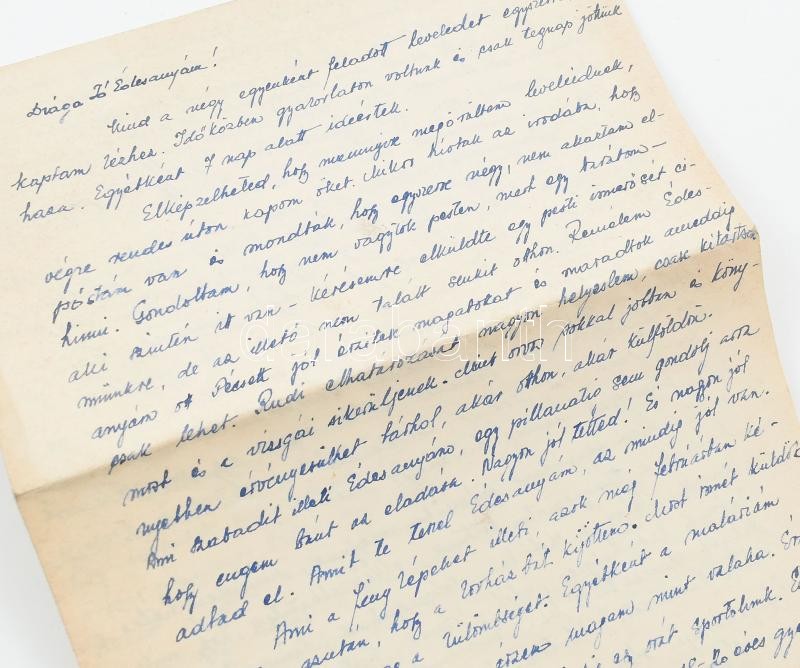 Drága Jó Édesanyám!
Mind a négy egyenként feladott leveledet egyszerre
kaptam kézhez. Időközben gyakorlaton voltunk és csak tegnap jöttünk
haza. Egyébként 7 nap alatt ideértek.
Elképzelheted, hogy mennyire megörültem leveleidnek,
végre rendes úton kapom őket. Mikor hívtak az irodába, hogy
póstám van és mondták, hogy egyszerre négy, nem akartam el-
hinni. Gondoltam, hogy nem vagytok pesten, mert egy barátom –
aki szintén itt van – kérésemre elküldte egy pesti ismerősét ci-
münkre, de az illető nem talált senkit otthon. Remélem Édes-
anyám ott Pécsett jól érzitek magatokat és maradtok ameddig
csak lehet. Rudi elhatározását nagyon helyeslem, csak kitartson
most és a vizsgái sikerüljenek. Mint orvos sokkal jobban és köny-
nyebben érvényesülhet bárhol, akár otthon, akár külföldön.
Ami szabadit illeti Édesanyám, egy pillanatig sem gondolj arra
hogy engem bánt az eladása. Nagyon jól tetted! És nagyon jól
adtad el. Amit te teszel Édesanyám, az mindig jól van.
Ami a fényképeket illeti, azok még februárban ké-
azután, hogy a kórházból kijöttem. Most ismét küldök
a külömbséget. Egyébként a maláriám
érzem magam mint valaha.
az orát sportolunk.
20 éves